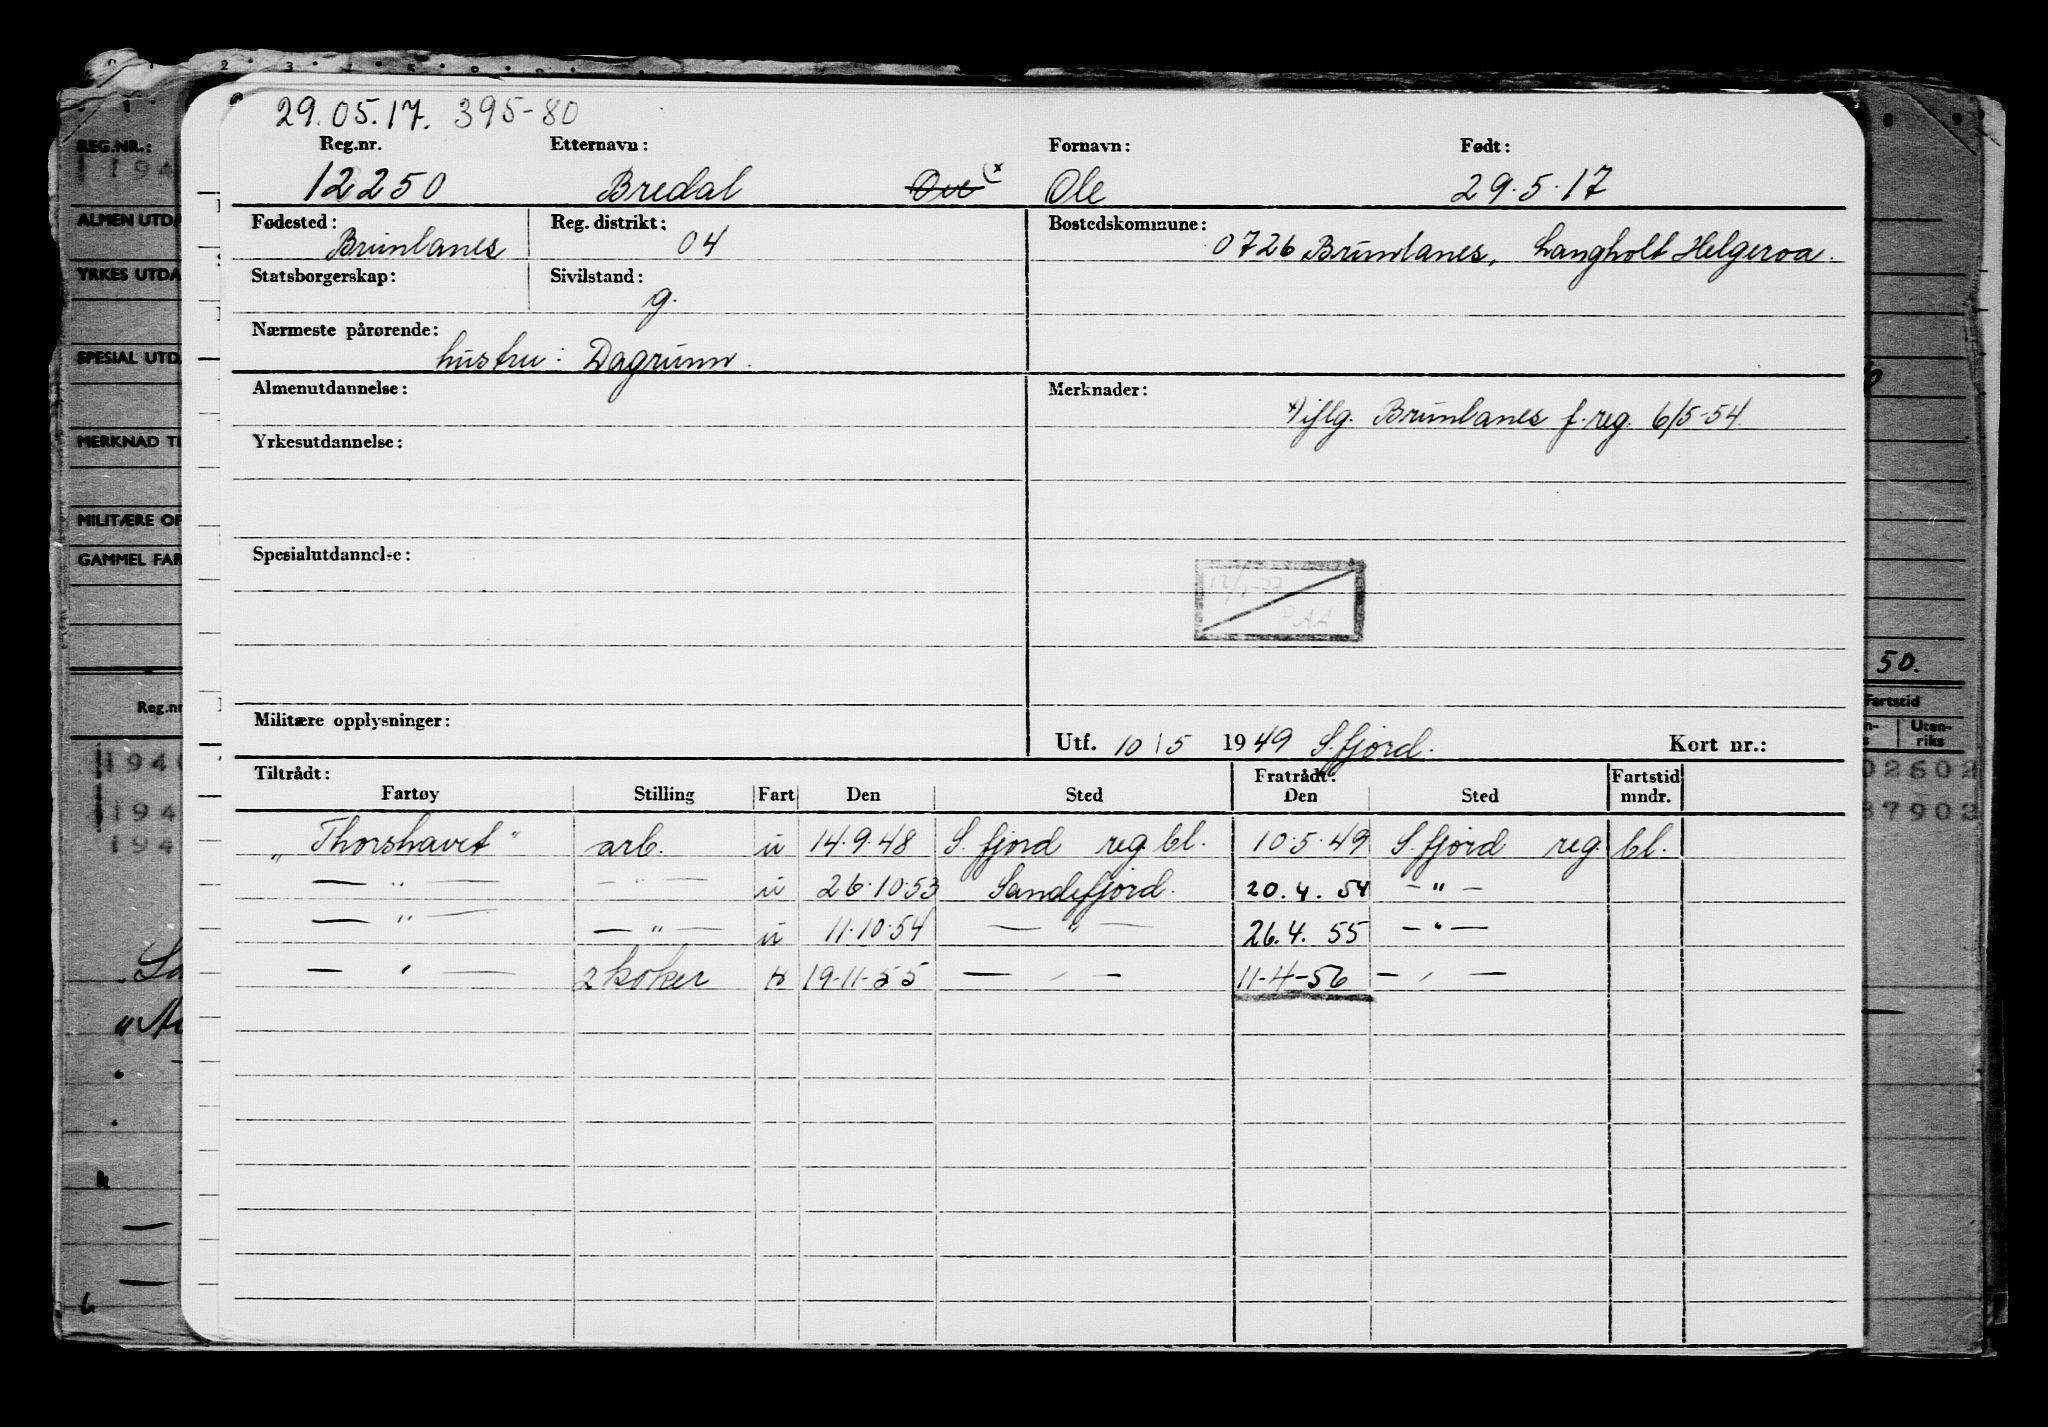 29.05.17. 395-80
Reg.nr. Etternavn: Fornavn: Født:
12250 Bredal Ove (x Ole 29.5.17
Fødested: Reg. distrikt: Bostedskommune:
Brunlanes 04 0726 Brunlanes, Langholt Helgeroa.
Statsborgerskap: Sivilstand:
g.
Nærmeste pårørende:
hustru: Dagrunn.
Almenutdannelse: Merknader:
x) iflg. Brunlanes f.reg. 6/5-54.
Yrkesutdannelse:
Spesialutdannelse:
Militære opplysninger:
Utf. 10/5 1949 S.fjord. Kort nr.:
Tiltrådt: Fratrådt: Fartstid
Fartøy Stilling Fart Den Sted Den Sted mndr.
"Thorshavet" arb. u 14.9.48 S.fjord reg.bl. 10.5.49 S.fjord reg. bl.
— " — — " — u 26.10.53 Sandefjord. 20.4.54 — " —
— " — — " — u 11.10.54 — " — 26.4.55 — " —
— " — 2 koker H 19-11-55 — " — 11-4-56 — " —
REG.NR.:
194
ALMEN UTDA
YRKES UTDA
SPESIAL UTDA
MERKNAD TI
MILITÆRE OP
GAMMEL FAR
Reg.nr
194
194
194
50.
Fartstid
Uten-
riks
02602
37902